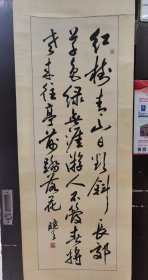 红树青山日欲斜长郊
草色绿无涯游人不管春将
老来往亭前踏落花